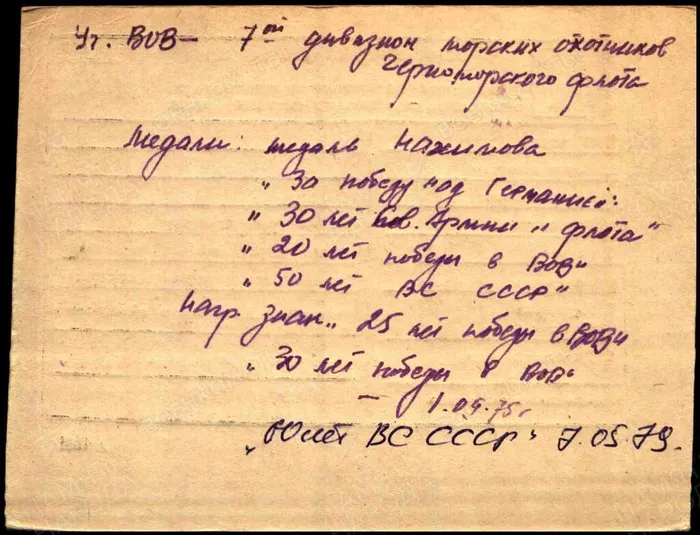 Уч. ВОВ – 7ой дивизион морских охотников
Черноморского флота
Медали: медаль Нахимова
„ За победу над Германией:
„ 30 лет Сов. Армии и флота"
„ 20 лет победы в ВОВ"
„ 50 лет ВС СССР"
Нагр. знак „ 25 лет победы в ВОВ"
„ 30 лет победы в ВОВ"
– 1.04.75г
„60 лет ВС СССР" 7.05.79.